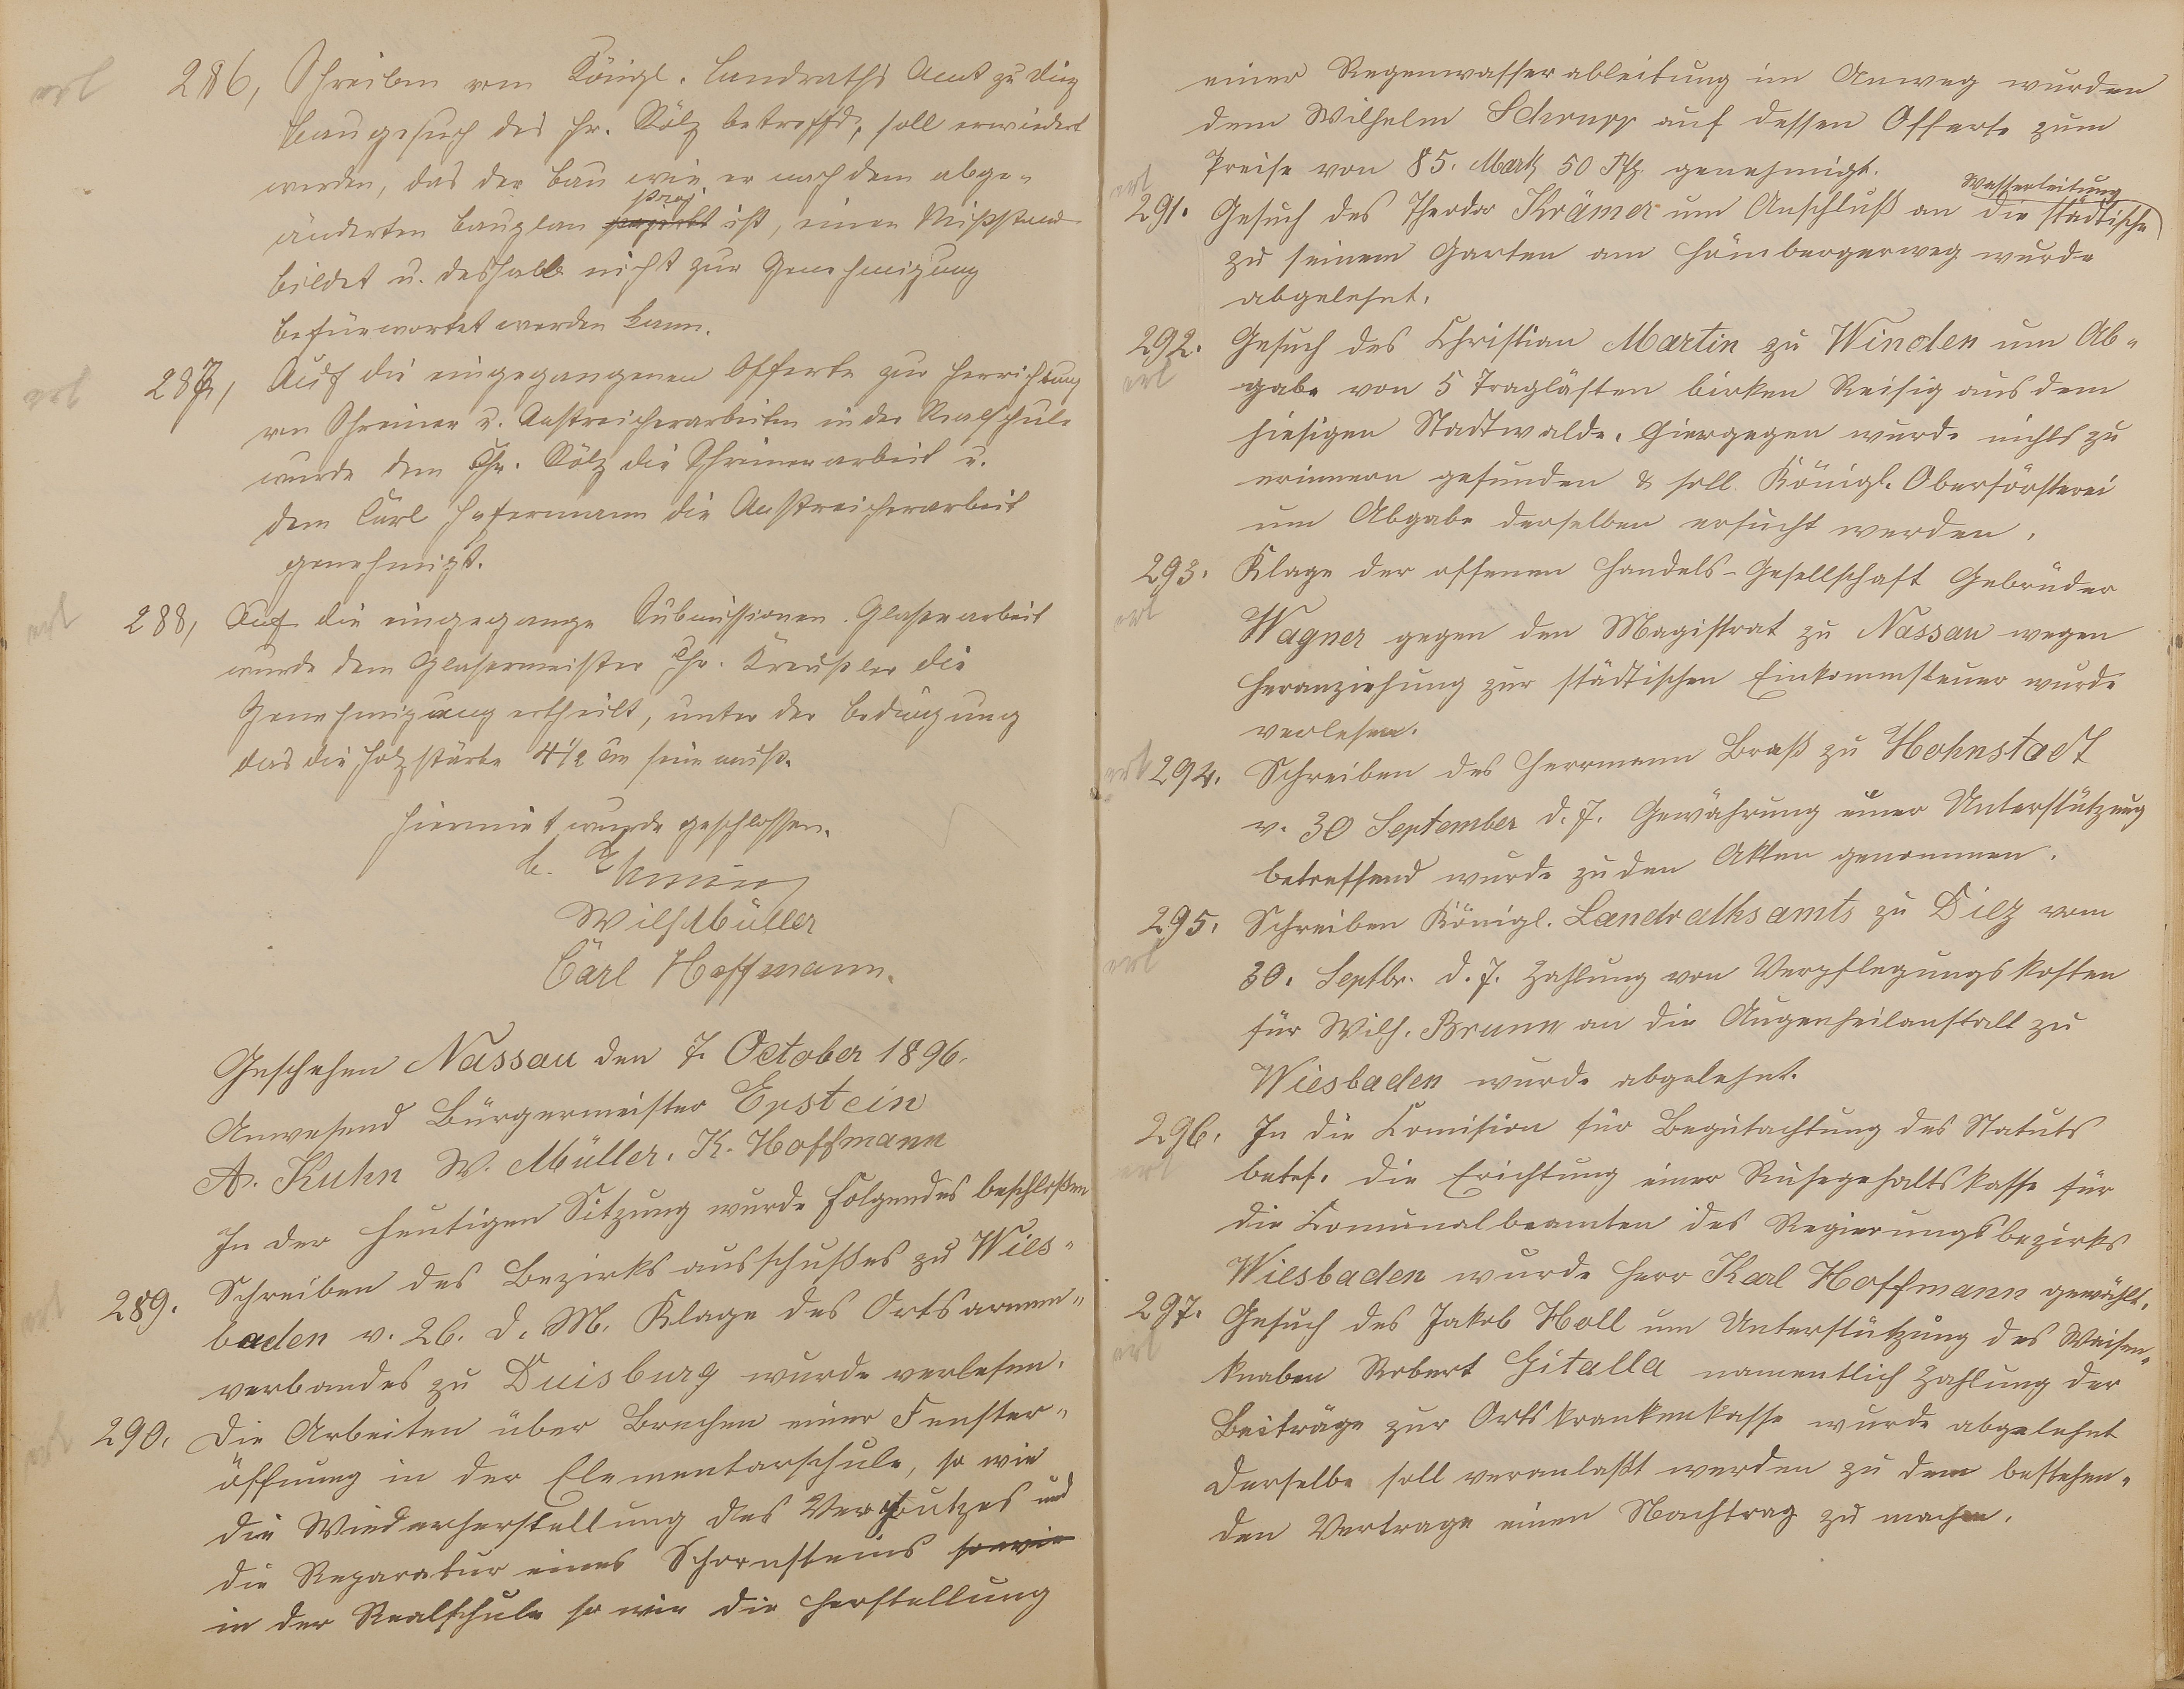 erl
286, Schreiben vom Königl. Landraths Amt zu Diez
Baugesuch des Hr. Kölz betreffd, soll erwiedert
werden, das der Bau wie er nach dem abge-
proj
änderten Bauplan ist, einen Mißstand
bildet u. deshalb nicht zur Genehmigung
befürwortet werden kann.
erl
287, Auf die eingegangenen Offerte zur Herrichtung
von Schreiner u. Anstreicherarbeiten in der Realschule
wurde dem Chr. Kölz die Schreinerarbeit u.
dem Carl Hafermann die Anstreicherarbeit
genehmigt.
erl
288, Auf die eingegange Submissionen Glaserarbeit
wurde dem Glasermeister Chr. Kreußler die
Genehmigung ertheilt, unter der Bedingung
das die Holzstärke 4 1/2 cm sein muß.
Hiermit wurde geschlossen.
Wilh Müller
Carl Hoffmann.
Geschehen Nassau den 7. October 1896.
Anwesend Bürgermeister Epstein
A. Kuhn W. Müller. K. Hoffmann
In der heutigen Sitzung wurde folgendes beschloßen
erl
289. Schreiben des Bezirksausschußes zu Wies-
baden v. 26. d. M. Klage des Ortsarmen-
verbandes zu Duisburg wurde verlesen.
erl
290. Die Arbeiten über Brechen einer Fenster-
öffnung in der Elementarschule, so wie
die Wiederherstellung des Verputzes und
die Reparatur eines Schornsteins sowie
in der Realschule so wie die Herstellung
einer Regenwasserableitung im Anweg wurden
dem Wilhelm Schrupp auf dessen Offerte zum
Preise von 85. Mark 50 Pfg. genehmigt.
erl
Wasserleitung
291. Gesuch des Theodor Krämer um Anschluß an die städtische
zu seinem Garten am Hömbergerweg wurde
abgelehnt.
292. Gesuch des Christian Martin zu Winden um Ab-
erl
gabe von 5 Traglästen birken Reisig aus dem
hiesigen Stadtwalde. Hiergegen wurde nichts zu
erinnern gefunden & soll Königl. Oberförsterei
um Abgabe derselben ersucht werden.
293. Klage der offenen Handels-Gesellschaft Gebrüder
erl
Wagner gegen den Magistrat zu Nassau wegen
Heranziehung zur städtischen Einkommsteuer wurde
verlesen.
erl
294. Schreiben des Herrmann Braß zu Hohnstadt
v. 30 September d. J. Gewährung einer Unterstützung
betreffend wurde zu den Akten genommen.
295. Schreiben Königl. Landrathsamts zu Diez vom
erl
30. Septbr. d. J. Zahlung von Verpflegungskosten
für Wilh. Brunn an die Augenheilanstalt zu
Wiesbaden wurde abgelehnt.
296. In die Comision für Begutachtung des Statuts
erl
betrf. die Erichtung einer Ruhegehaltskasse für
die Comunalbeamten des Regierungsbezirks
Wiesbaden wurde Herr Karl Hoffmann gewählt.
297. Gesuch des Jakob Holl um Unterstützung des Waisen-
erl
knaben Robert Gitalla namentlich Zahlung der
Beiträge zur Ortskrankenkasse wurde abgelehnt
derselbe soll veranlaßt werden zu dem bestehen-
den Vertrage einen Nachtrag zu machen.